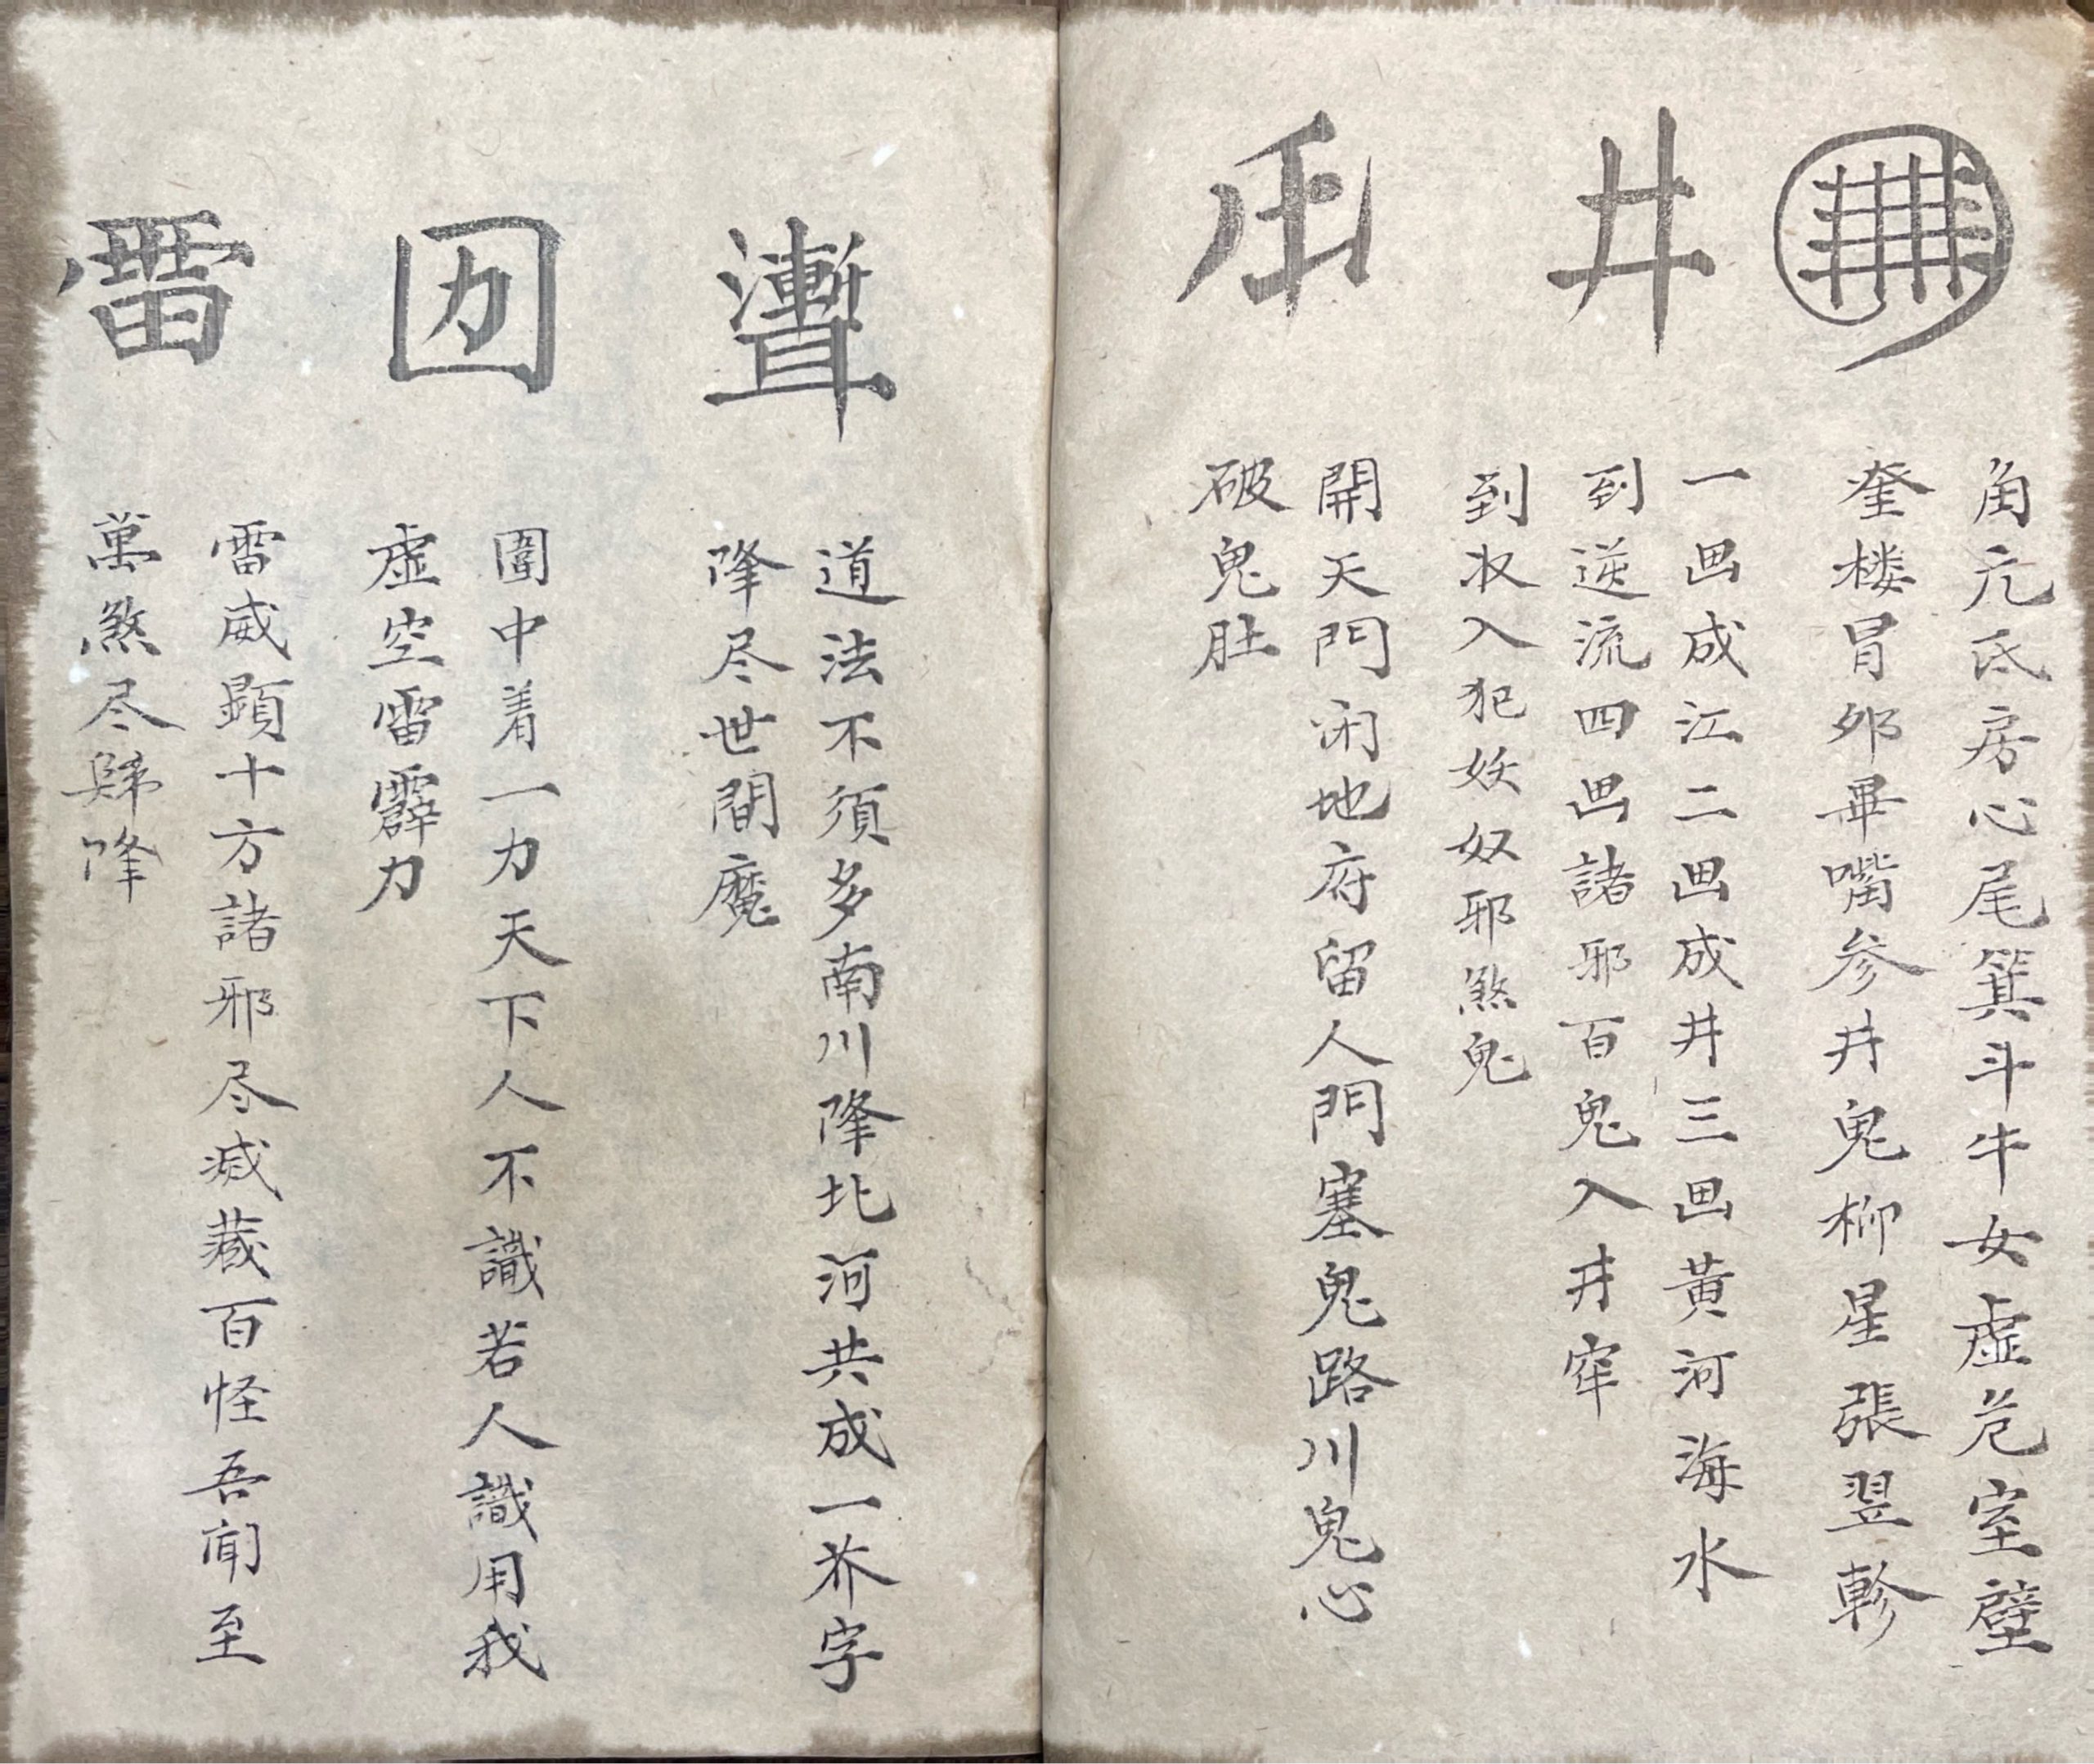 井
角亢氐房心尾箕斗牛女虛危室壁
奎楼胃卯畢嘴参井鬼柳星張翌軫
一画成江二画成井三画黄河海水
到逆流四画諸邪百鬼入井窂
到収入犯妖奴邪煞鬼
開天門闭地府留人門塞鬼路川鬼心
破鬼肚
囚
雷
道法不須多南川降北河共成一爷字
降尽世間魔
圍中着一力天下人不識若人識用我
虛空雷霹力
雷威顕十方諸邪尽滅蔵百怪吾闻至
萬煞尽歸降